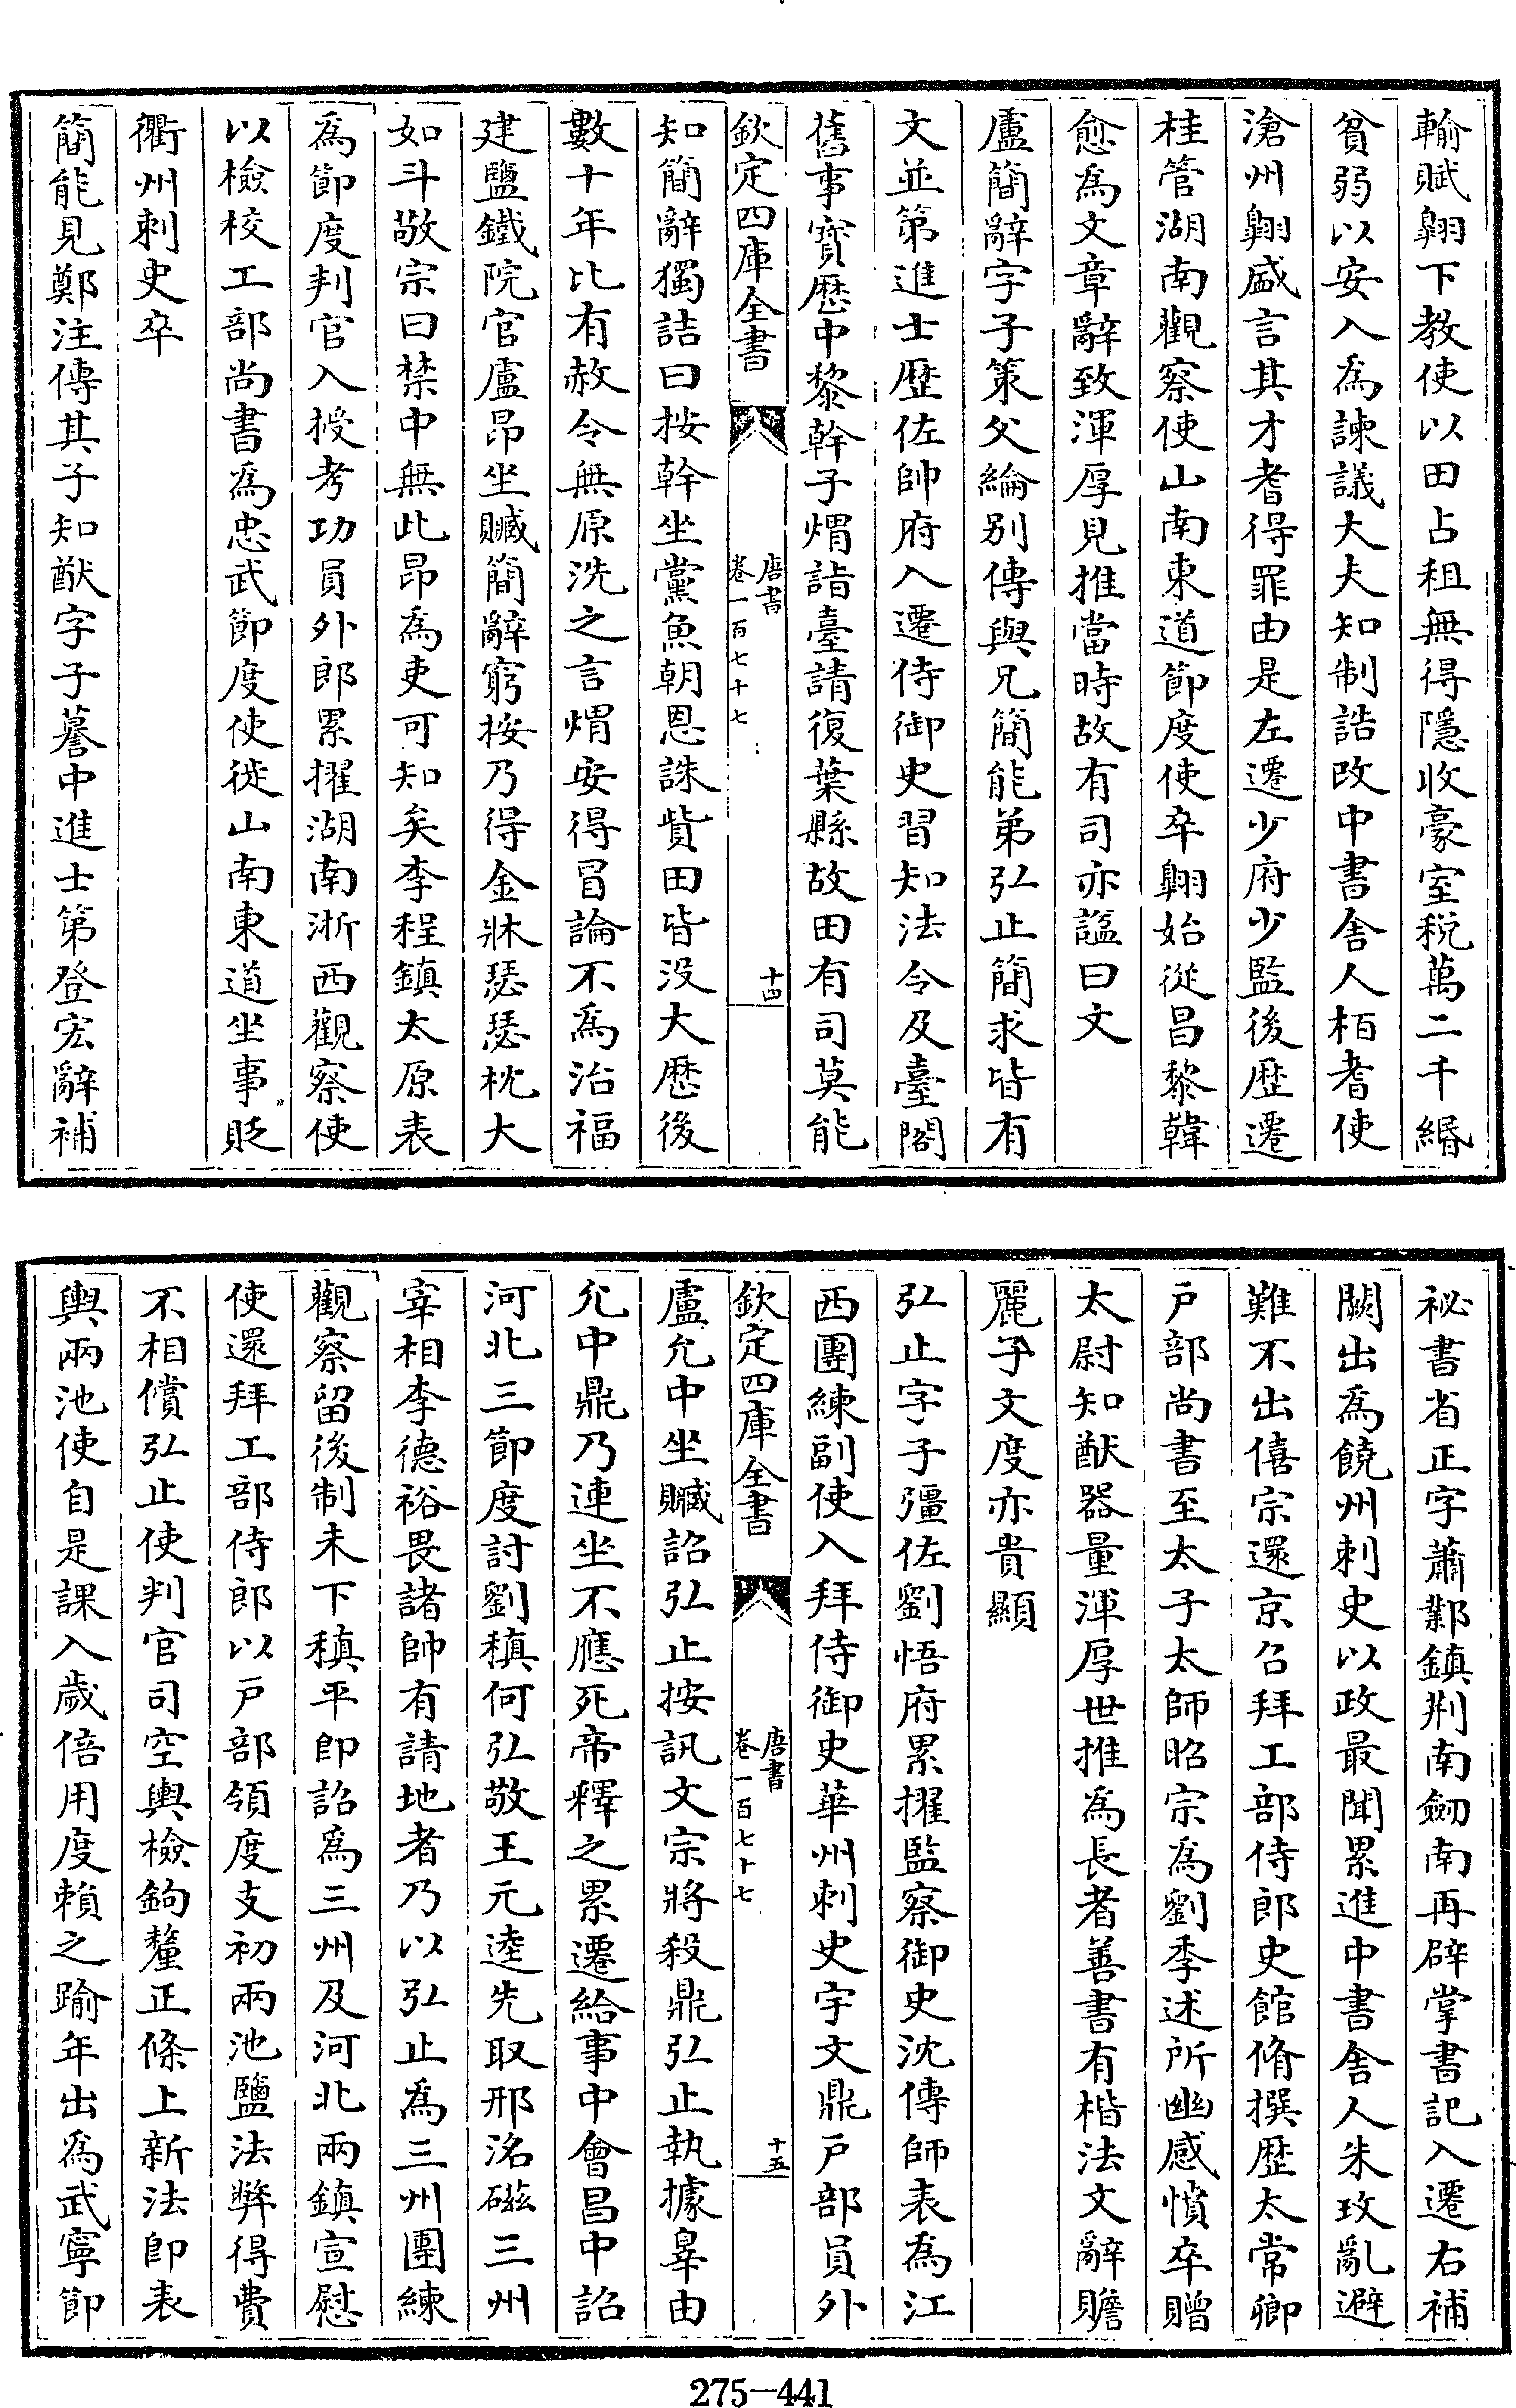 輸賦翺下教使以田占租無得隱收豪室稅萬二千緡
貧弱以安入為諫議大夫知制誥改中書舍人栢耆使
滄州翺盛言其才耆得罪由是左遷少府少監後歴遷
桂管湖南觀察使山南東道節度使卒翺始從昌黎韓
愈為文章辭致渾厚見推當時故有司亦謚曰文
盧簡辭字子策父綸别傳與兄簡能弟弘止簡求皆有
文並第進士歴佐帥府入遷侍御史習知法令及臺閣
舊事寳歴中黎幹子煟詣臺請復葉縣故田有司莫能
欽定四庫全書
唐書
卷一百七十七
十四
知簡辭獨詰曰按幹坐黨魚朝恩誅貲田皆没大歴後
數十年比有赦令無原洗之言煟安得冒論不為治福
建鹽鐵院官盧昂坐贓簡辭窮按乃得金牀瑟瑟枕大
如斗敬宗曰禁中無此昂為吏可知矣李程鎮太原表
為節度判官入授考功員外郎累擢湖南浙西觀察使
以檢校工部尚書為忠武節度使徙山南東道坐事貶
衢州刺史卒
簡能見鄭注傳其子知猷字子蕃中進士第登宏辭補
祕書省正字蕭鄴鎮荆南劒南再辟掌書記入遷右補
闕出為饒州刺史以政最聞累進中書舍人朱玫亂避
難不出僖宗還京召拜工部侍郎史館脩撰歴太常卿
户部尚書至太子太師昭宗為劉季述所幽感憤卒贈
太尉知猷器量渾厚世推為長者善書有楷法文辭贍
麗子文度亦貴顯
弘止字子彊佐劉悟府累擢監察御史沈傳師表為江
西團練副使入拜侍御史華州刺史宇文鼎户部員外
欽定四庫全書
唐書
卷一百七十七
十五
盧允中坐贓詔弘止按訊文宗將殺鼎弘止執據辠由
允中鼎乃連坐不應死帝釋之累遷給事中會昌中詔
河北三節度討劉稹何弘敬王元逵先取邢洺磁三州
宰相李德裕畏諸帥有請地者乃以弘止為三州團練
觀察留後制未下稹平即詔為三州及河北兩鎮宣慰
使還拜工部侍郎以户部領度支初兩池鹽法弊得費
不相償弘止使判官司空輿檢鉤釐正條上新法即表
輿兩池使自是課入歲倍用度賴之踰年出為武寧節
275-441